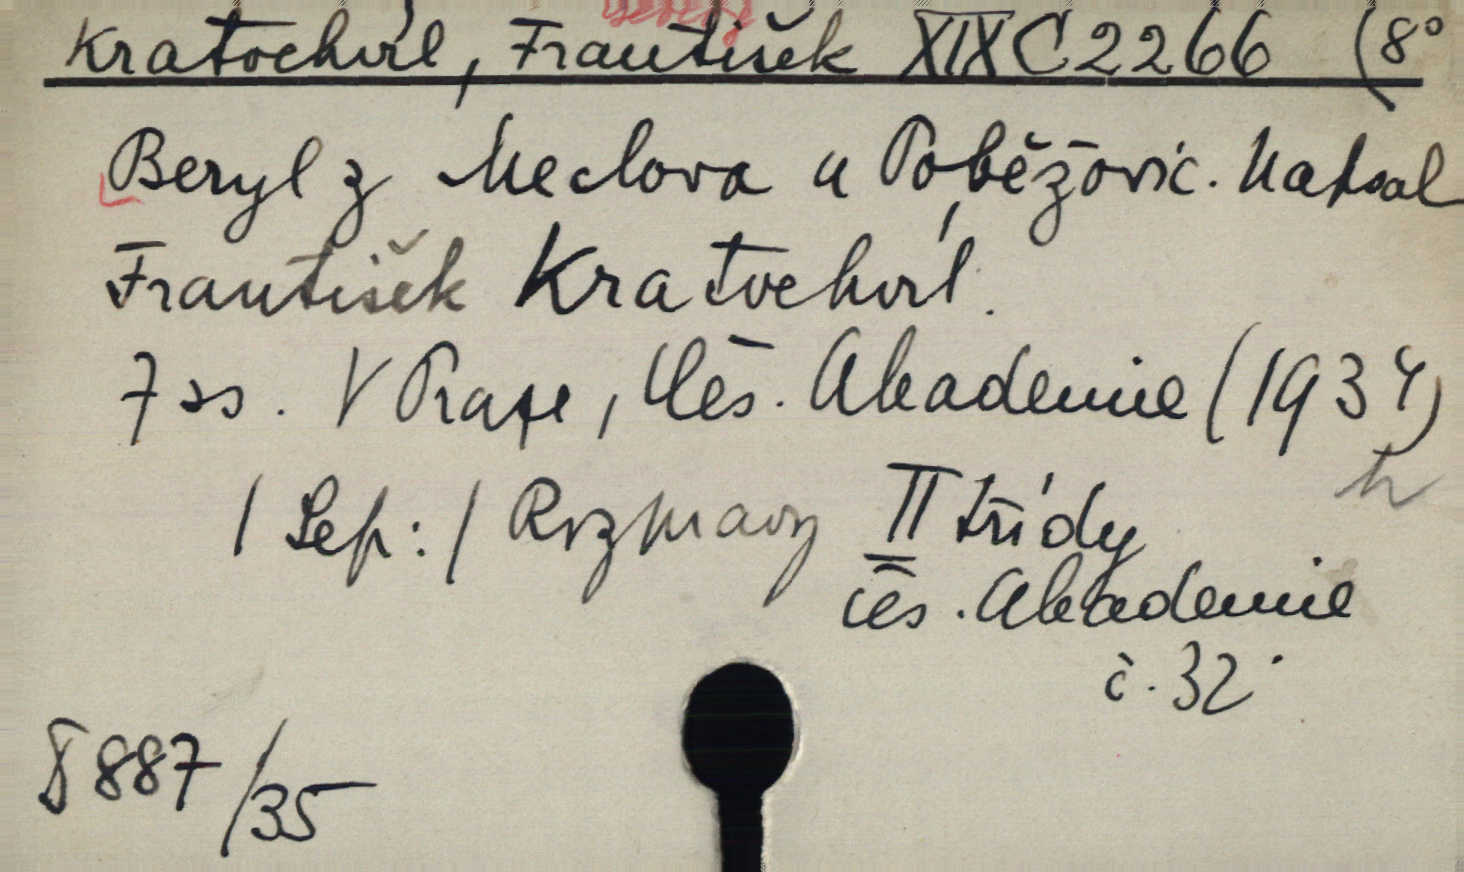 Kratochvíl, František XIX C 2266 (8°
Beryl z Meclova u Poběžovic. Napsal
František Kratochvíl.
7 ss. V Praze, Čes. Akademie (1934)
/ Sep: / Rozpravy II třídy
čes. Akademie
č. 32
§ 887/35